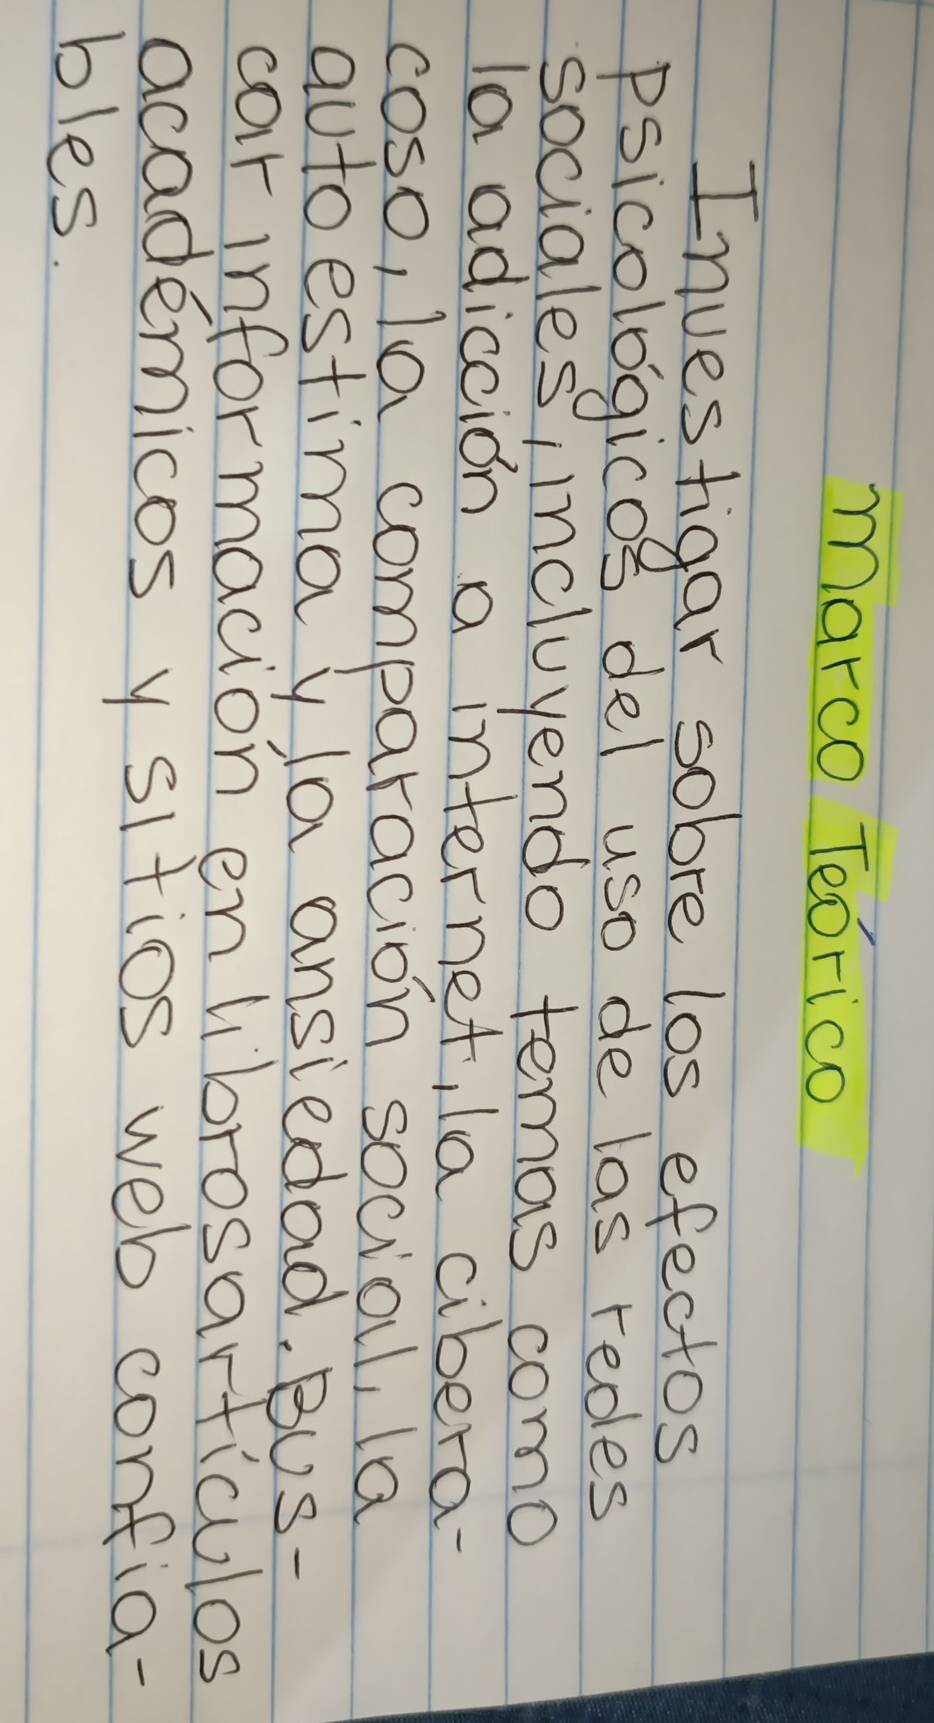 Marco Teórico
Investigar sobre los efectos
psicológicos del uso de las redes
sociales, incluyendo temas como
la adicción a internet, la cibera-
coso, la comparación social, la
autoestima y la ansiedad. Bus-
car información en libros artículos
académicos y sitios web confia-
bles.